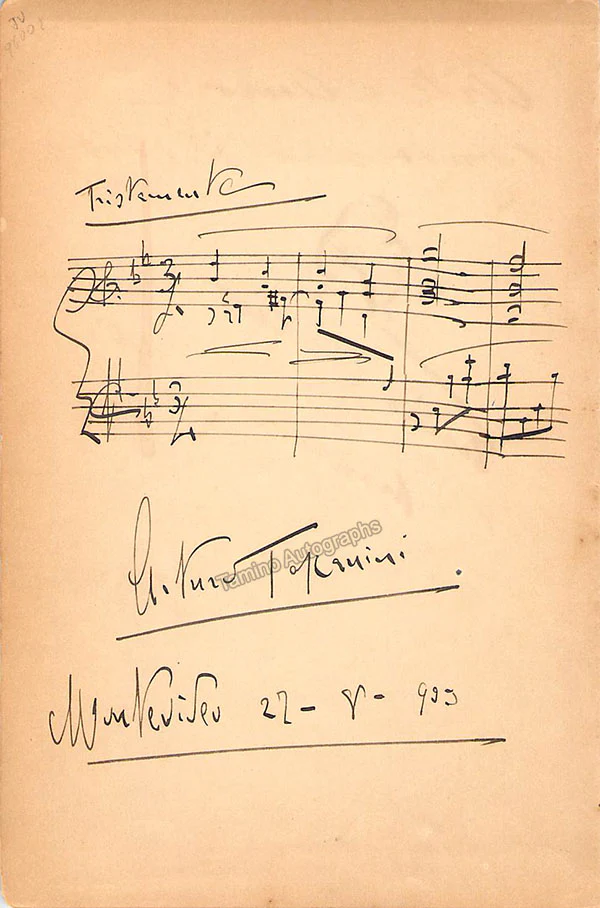 Tristamente
Arturo Toscanini
Tamino Autographs
Montevideo 27 - 8 - 903